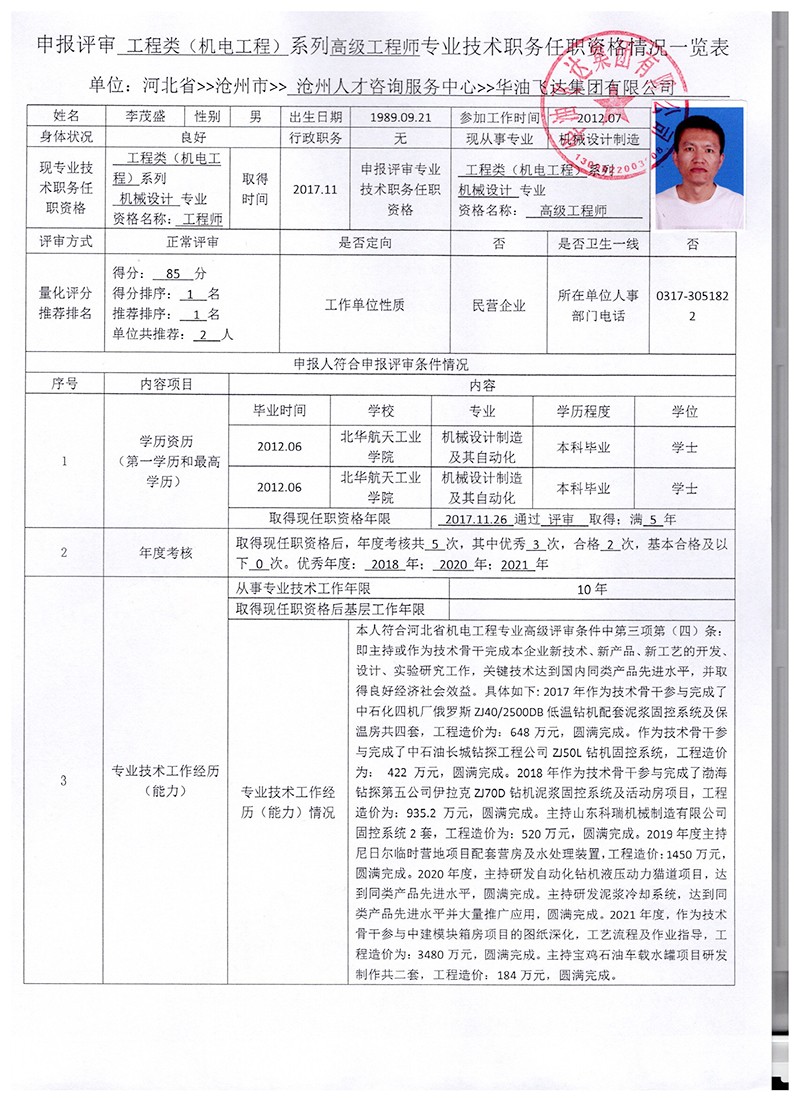 申报评审 工程类（机电工程）系列高级工程师专业技术职务任职资格情况一览表
单位：河北省>>沧州市>> 沧州人才咨询服务中心>>华油飞达集团有限公司
姓名 李茂盛 性别 男 出生日期 1989.09.21 参加工作时间 2012.07
身体状况 良好 行政职务 无 现从事专业 机械设计制造
现专业技术职务任职资格 工程类（机电工程）系列 机械设计 专业 资格名称： 工程师 取得时间 2017.11 申报评审专业技术职务任职资格 工程类（机电工程）系列 机械设计 专业 资格名称： 高级工程师
评审方式 正常评审 是否定向 否 是否卫生一线 否
量化评分推荐排名 得分： 85 分 得分排序： 1 名 推荐排序： 1 名 单位共推荐： 2 人 工作单位性质 民营企业 所在单位人事部门电话 0317-3051822
申报人符合申报评审条件情况
序号 内容项目 内容
1 学历资历（第一学历和最高学历） 毕业时间 学校 专业 学历程度 学位
2012.06 北华航天工业学院 机械设计制造及其自动化 本科毕业 学士
2012.06 北华航天工业学院 机械设计制造及其自动化 本科毕业 学士
取得现任职资格年限 2017.11.26 通过 评审 取得；满 5 年
2 年度考核 取得现任职资格后，年度考核共 5 次，其中优秀 3 次，合格 2 次，基本合格及以
下 0 次。优秀年度： 2018 年； 2020 年；2021 年
3 专业技术工作经历（能力） 从事专业技术工作年限 10 年
取得现任职资格后基层工作年限
专业技术工作经历（能力）情况
本人符合河北省机电工程专业高级评审条件中第三项第（四）条：
即主持或作为技术骨干完成本企业新技术、新产品、新工艺的开发、
设计、实验研究工作，关键技术达到国内同类产品先进水平，并取
得良好经济社会效益。具体如下: 2017 年作为技术骨干参与完成了
中石化四机厂俄罗斯 ZJ40/2500DB 低温钻机配套泥浆固控系统及保
温房共四套，工程造价为：648 万元，圆满完成。作为技术骨干参
与完成了中石油长城钻探工程公司 ZJ50L 钻机固控系统，工程造价
为： 422 万元，圆满完成。2018 年作为技术骨干参与完成了渤海
钻探第五公司伊拉克 ZJ70D 钻机泥浆固控系统及活动房项目，工程
造价为：935.2 万元，圆满完成。主持山东科瑞机械制造有限公司
固控系统 2 套，工程造价为：520 万元，圆满完成。2019 年度主持
尼日尔临时营地项目配套营房及水处理装置，工程造价：1450 万元，
圆满完成。2020 年度，主持研发自动化钻机液压动力猫道项目，达
到同类产品先进水平，圆满完成。主持研发泥浆冷却系统，达到同
类产品先进水平并大量推广应用，圆满完成。2021 年度，作为技术
骨干参与中建模块箱房项目的图纸深化，工艺流程及作业指导，工
程造价为：3480 万元，圆满完成。主持宝鸡石油车载水罐项目研发
制作共二套，工程造价：184 万元，圆满完成。